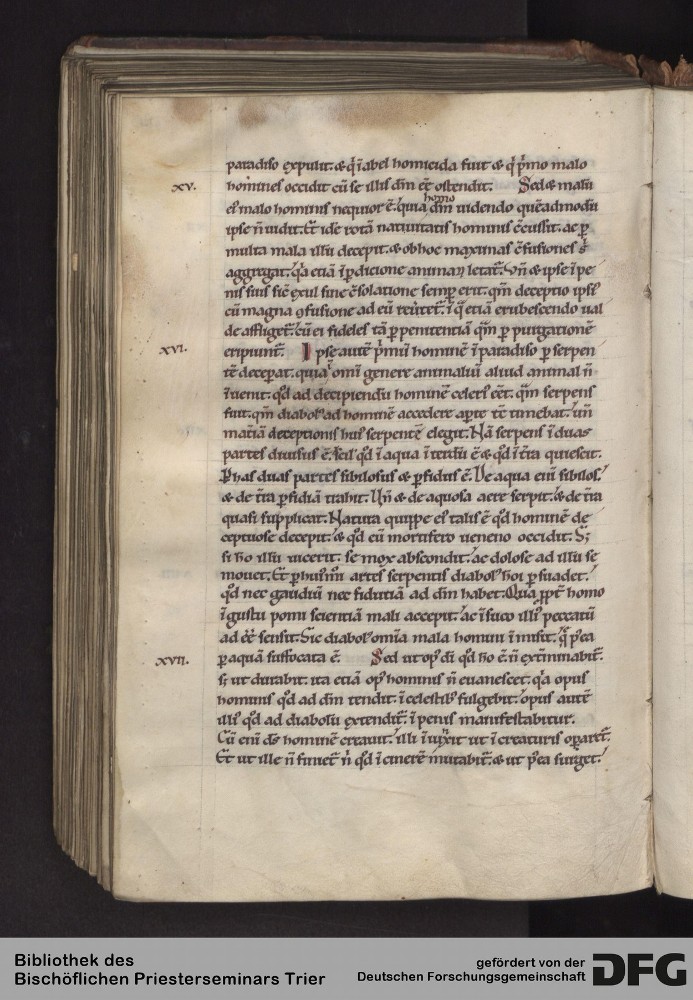 paradiso expulit. & qͥ i abel homicida fuit & qͥ pͥmo malo
XV. homines occidit cū se illis dīm eē ostendit. Sed & malū
eī malo hominis nequior ē. quia homo dīm uidendo quēadmodū
ipse n̄ uidit. Et idē totā natiuitatis hominis ɔ̄cussit. ac ꝑ
multa mala illū decepit. & ob hoc maximas ɔ̄fusiones sͥ
aggregat. qͣa etiā ī ꝑdicione animaꝝ letat᷑. Vn̄ & ipse ī pe
nis suis sic̄ exul sine ɔ̄solatione semꝑ erit. qm̄ deceptio ipsiꝰ
cū magna ɔfusione ad eū reūtet᷑. ī qͣ etiā erubescendo ual
de affliget᷑. cū ei fideles tā ꝑ penitentiā qͣm ꝑ purgationē
XVI. eripiunt᷑. Ipse autē pͥmū hominē ī paradiso ꝑ serpen
tē deceꝑat. quia ī omī genere animaliū aliud animal n̄
īuenit. qd̄ ad decipiendū hominē celeriꝰ eēt. qͣm serpens
fuit. qm̄ diabolꝰ ad hominē accedere aꝑte tc̄ timebat. un̄
matiā deceptionis huiꝰ serpentē elegit. Nā serpens ī duas
partes diuisus ē. scil qd̄ ī aqua ītdū ē & qd̄ ī tͥra quiescit.
Ꝑ has duas partes sibilosus & ꝑfidus ē. De aqua enī sibilos.
& de tͥra ꝑfidiā trahit. Vn̄ & de aquosa aere serpit. & de tͥra
quasi supplicat. Natura quippe eiꝰ talis ē qd̄ hominē de
ceptuose decepit. & qd̄ eū mortifero ueneno occidit. Sꝫ
si hō illū uicerit. se mox abscondit. ac dolose ad illū se
mouet. Et ꝑ huiꝰmōi artes serpentis diabolꝰ hōi ꝑsuadet.
qd̄ nec gaudiū nec fidutiā ad dīm habet. Qua ꝓpt͛ homo
ī gustu pomi scientiā mali accepit. ac ī suco illiꝰ peccatū
ad eē sensit. Sic diabolꝰ omīa mala homini īmisit. qͣ pͦea
XVII. ꝑ aquā suffocata ē. Sed ut opꝰ dī qd̄ hō ē. n̄ ext͛minabit᷑.
sꝫ ut durabit. ita etiā opꝰ hominis n̄ euanescet. qͣa opus
hominis qd̄ ad dīm tendit. ī celestibꝰ fulgebit. opus autē
illiꝰ qd̄ ad diabolū extendit᷑. ī penis manifestabitur.
Cū enī ds̄ hominē creauit. illi īiūxit ut ī creaturis oꝑaret᷑.
Et ut ille n̄ finiet᷑ nͥ qd̄ ī cinerē mutabit᷑. & ut pͦea surget.
Bibliothek des
Bischöflichen Priesterseminars Trier
gefördert von der
Deutschen Forschungsgemeinschaft DFG